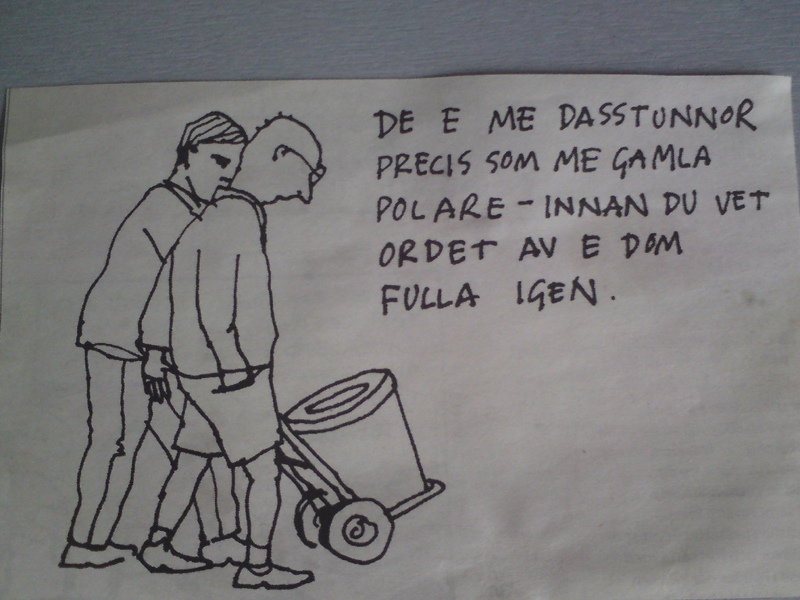 DE E ME DASSTUNNOR
PRECIS SOM ME GAMLA
POLARE - INNAN DU VET
ORDET AV E DOM
FULLA IGEN.